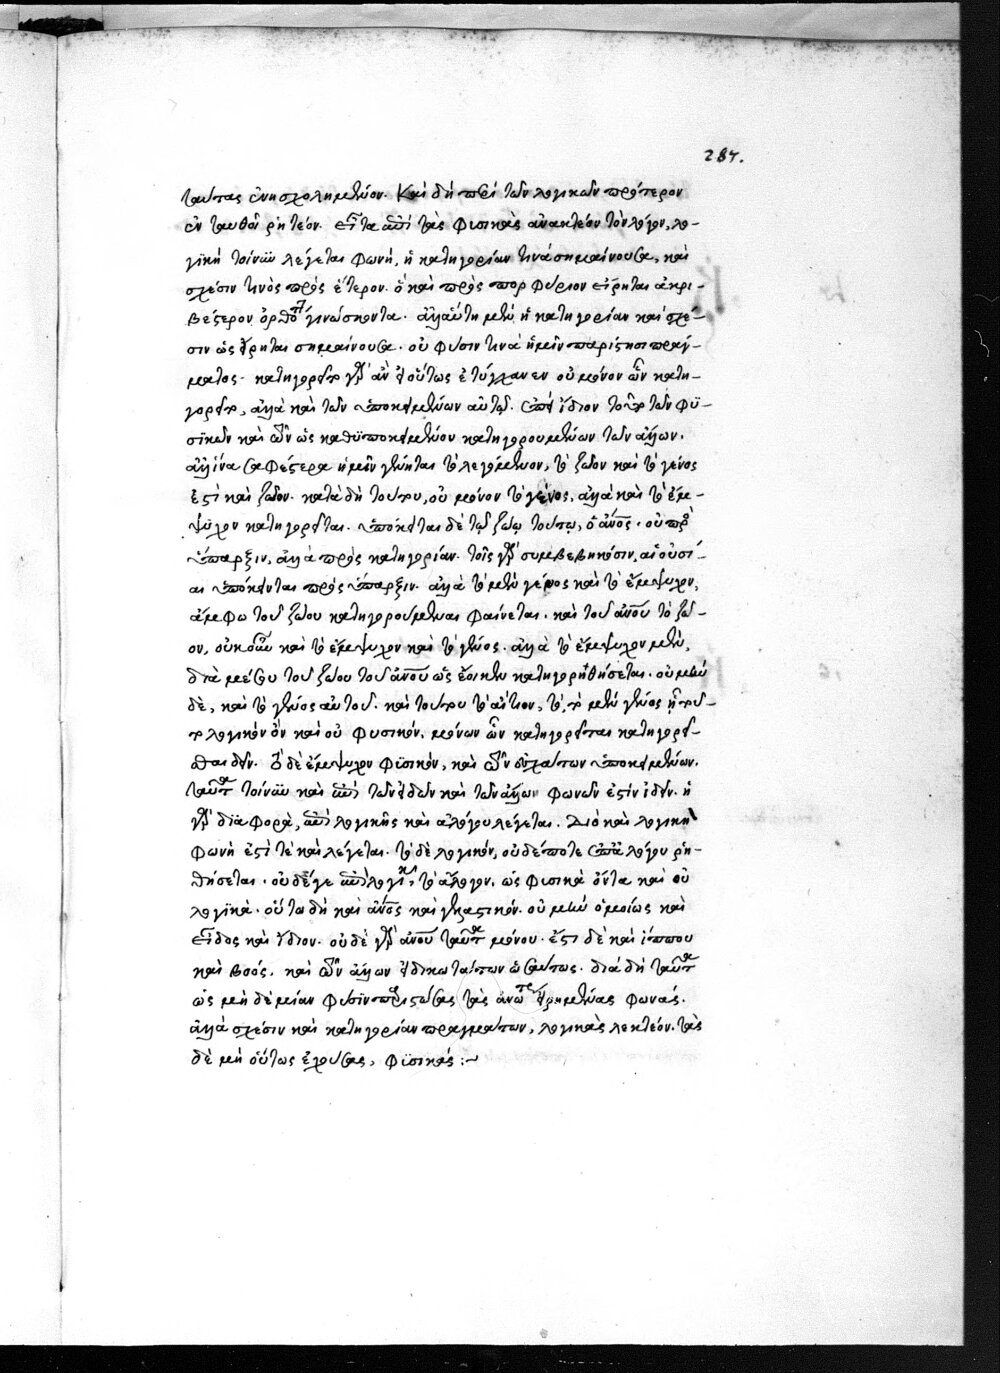 287.
ταύτας ἐνησχολημένον. Καὶ δὴ περὶ τῶν λογικῶν πρότερον
ἐνταυθοῖ ῥητέον. εἶτα ἐπὶ τὰς φυσικὰς ἀνακτέον τὸν λόγον. λο-
γικὴ τοίνυν λέγεται φωνή, ἡ κατηγορίαν τινὰ σημαίνουσα, καὶ
σχέσιν τινὸς πρὸς ἕτερον. ὃ καὶ πρὸς πορφύριον εἴρηται ἀκρι-
βέστερον γινώσκοντα. ἀλλ' αὕτη μὲν ἡ κατηγορίαν καὶ σχέ-
σιν ὡς εἴρηται σημαίνουσα. οὐ φύσιν τινὰ ἡμῖν παρίστησι πράγ-
ματος. κατηγορεῖτο γὰρ ἂν εἰ οὕτως ἐτύγχανεν οὐ μόνον ὧν κατη-
γορεῖτο, ἀλλὰ καὶ τῶν ὑποκειμένων αὐτῷ. ἐπεὶ ἴδιον τοῦτο τῶν φυ-
σϊκῶν καὶ ὧν ὡς καθϋποκειμένου κατηγορουμένων τῶν ἄλλων.
ἀλλ' ἵνα σαφέστερα ἡμῖν γένηται τὸ λεγόμενον, τὸ ζῶον καὶ τὸ γένος
ἐστὶ καὶ ζῶον. κατὰ δὴ τούτου, οὐ μόνον τὸ γένος, ἀλλὰ καὶ τὸ ἔμ-
ψυχον κατηγορεῖται. ὑπόκειται δὲ τῷ ζώῳ τούτῳ, ὁ ἄνος. οὐ πρὸς
ὕπαρξιν, ἀλλὰ πρὸς κατηγορίαν. τοῖς γὰρ συμβεβηκόσιν, αἱ οὐσί-
αι ὑπόκεινται πρὸς ὕπαρξιν. ἀλλὰ τὸ μὲν γένος καὶ τὸ ἔμψυχον,
ἄμφω τοῦ ζώου κατηγορούμεναι φαίνεται. καὶ τοῦ ἀνου τὸ ζῶ-
ον, οὐκοῦν καὶ τὸ ἔμψυχον καὶ τὸ γένος. ἀλλὰ τὸ ἔμψυχον μὲν,
διὰ μέσου τοῦ ζώου τοῦ ἀνου ὡς ἔοικεν κατηγορηθήσεται. οὐ μὴν
δὲ, καὶ τὸ γένος αὐτοῦ. καὶ τούτου τὸ αἴτιον, τὸ, τὸ μὲν γένος
λογικὸν ὂν καὶ οὐ φυσικόν, μόνων ὧν κατηγορεῖται κατηγορεῖ-
σθαι δεῖν. τὸ δὲ ἔμψυχον φϋσικόν, καὶ ὧν ὑποκειμένων.
ταῦτα τοίνυν καὶ ἐπὶ τῶν εἰδῶν καὶ τῶν ἄλλων φωνῶν ἐστὶν ἰδεῖν. ἡ
γὰρ διαφορὰ, ἐπὶ λογικῆς καὶ ἀλόγου λέγεται. Διὸ καὶ λογικὴ
φωνὴ ἐστί τε καὶ λέγεται. τὸ δὲ λογικόν, οὐδέποτε ἐπὶ ἀλόγου ῥη-
θήσεται. οὐδέ γε ἐπὶ λογικοῦ τὸ ἄλογον. ὡς φυσικὰ ὄντα καὶ οὐ
λογϊκά. οὕτω δὴ καὶ ἄνος καὶ γελαστικόν. οὐ μὴν ὁμοίως καὶ
εἶδος καὶ ἴδιον. οὐδὲ γὰρ ἀνου ταῦτα μόνου. ἔστι δὲ καὶ ἵππου
καὶ βοός. καὶ τῶν ἄλλων εἰδικωτάτων ὡσαύτως. διὰ δὴ ταῦτα
ὡς μὴ δὲ μίαν φύσιν παριστώσας τὰς ἀνωτέρω εἰρημένας φωνάς.
ἀλλὰ σχέσιν καὶ κατηγορίαν πραγμάτων, λογικὰς λεκτέον. τὰς
δὲ μὴ οὕτως ἐχούσας, φϋσικάς :~